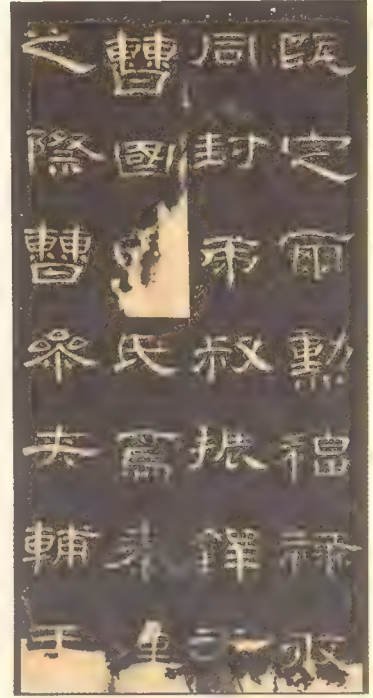 既定爾勳福祿攸
同封弟叔振鐸于
曹國氏焉秦
之際曹參夾輔王